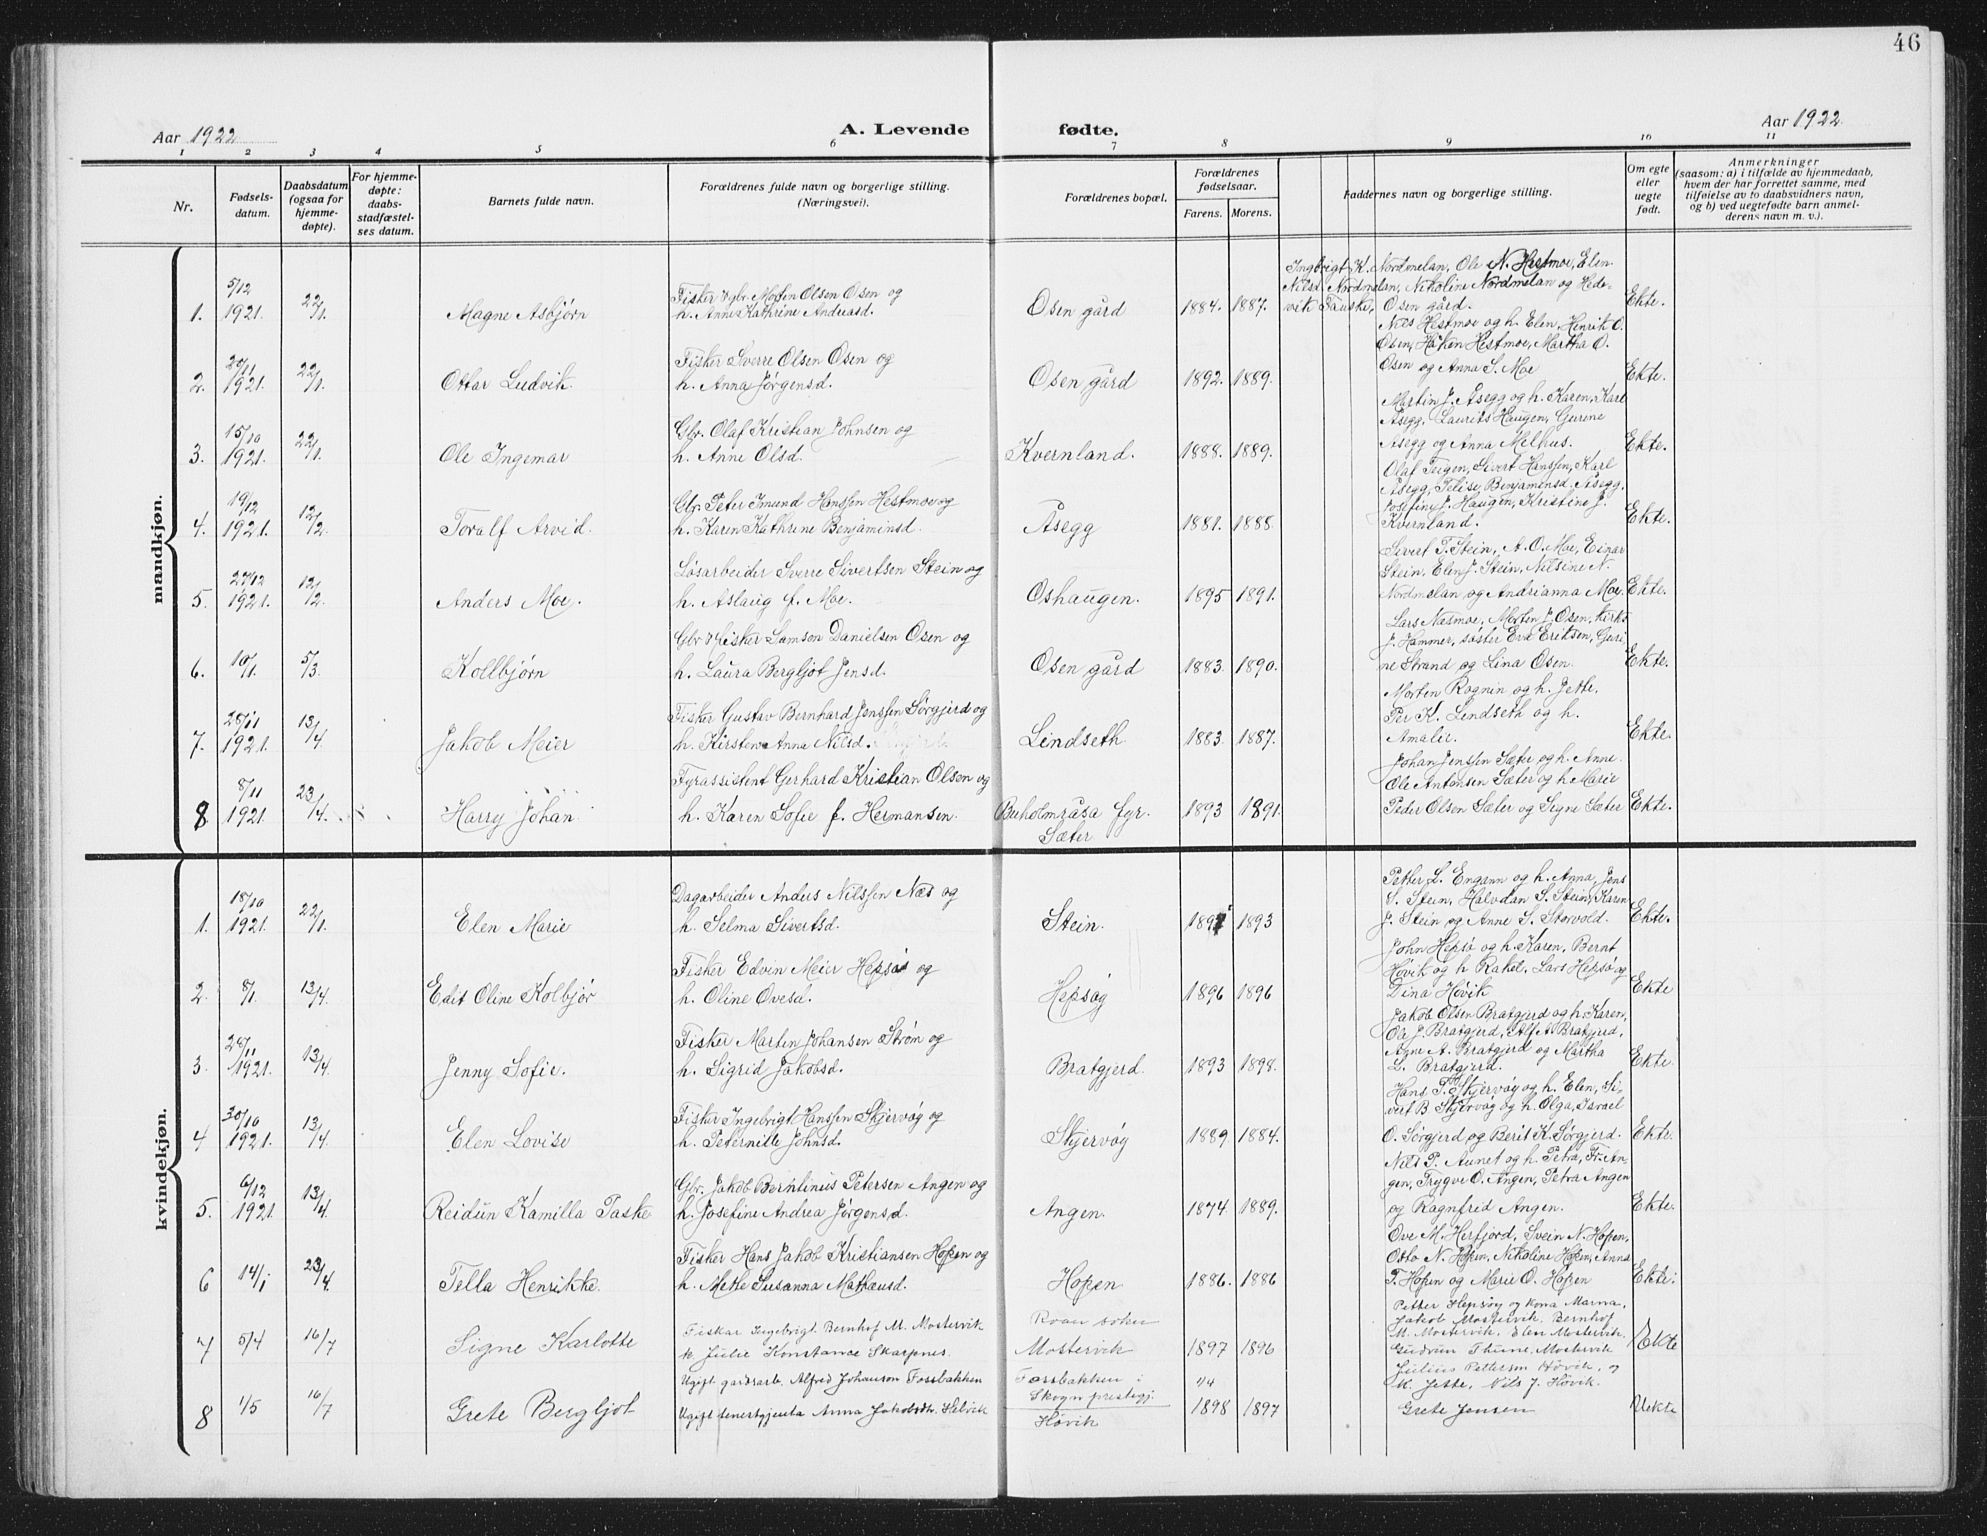 46
Aar 1922
A. Levende fødte.
Aar 1922.
1 2 3 4 5 6 7 8 9 10 11
Nr.
Fødsels-
datum.
Daabsdatum
(ogsaa for
hjemme-
døpte).
For hjemme-
døpte:
daabs-
stadfæstel-
ses datum.
Barnets fulde navn.
Forældrenes fulde navn og borgerlige stilling.
(Næringsvei).
Forældrenes bopæl.
Forældrenes
fødselsaar.
Farens. Morens.
Faddernes navn og borgerlige stilling.
Om egte
eller
uegte
født.
Anmerkninger
(saasom: a) i tilfælde av hjemmedaab,
hvem der har forrettet samme, med
tilføielse av to daabsvidners navn,
og b) ved uegtefødte barn anmel-
derens navn m. v.).
mandkjøn.
1. 5/12 1921. 22/1. Magne Asbjørn
Fisker & gbr. Morten Olsen Osen og
h. Anne Kathrine Andreasd.
Osen gård 1884. 1887.
Ingebrigt K. Nordmelan, Ole N. Hestmoe, Elen
Nilsd. Nordmelan, Nikoline Nordmelan og Hede-
vik Fauske, Osen gård.
Ekte.
2. 20/11 1921. 22/1. Ottar Ludvik
Fisker Sverre Olsen Osen og
h. Anna Jørgensd.
Osen gård 1892. 1889.
Nils Hestmoe og h. Elen, Henrik O.
Osen, Håken Hestmoe, Martha O.
Osen og Anna S. Moe
Ekte.
3. 15/10 1921. 22/1. Ole Ingemar
Gbr. Olaf Kristian Johnsen og
h. Anne Olsd.
Kvernland. 1888. 1889.
Martin J. Åsegg og h. Karen, Karl
Åsegg, Laurits Haugen, Gurine
Åsegg og Anna Melhus.
Ekte.
4. 19/12 1921. 12/2. Toralf Arvid.
Gbr. Peter Imund Hanssen Hestmoe og
h. Karen Kathrine Benjaminsd.
Åsegg 1881. 1888.
Olaf Teigen, Sivert Hanssen, Karl
Åsegg, Felise Benjaminsd. Åsegg,
Josefine J. Haugen, Kristine J.
Kvernland.
Ekte.
5. 27/12 1921. 12/2. Anders Moe.
Løsarbeider Sverre Sivertsen Stein og
h. Aslaug f. Moe.
Oshaugen. 1895 1891.
Sivert T. Stein, A. O. Moe, Einar
Stein, Elen J. Stein, Nilsine N.
Nordmelan og Andrianna Moe.
Ekte.
6. 10/1. 5/3. Kollbjørn
Gbr & fisker Samson Danielsen Osen og
h. Laura Bergljot Jensd.
Osen gård 1883. 1890.
Lars Næsmoe, Morten J. Osen, kirks.
J. Hammer, søster Eva Eriksen, Guri-
ne Strand og Lina Osen.
Ekte.
7. 28/11 1921. 13/4. Jakob Meier
Fisker Gustav Bernhard Jenssen Sørgjerd og
h. Kirsten Anna Nilsd.
Lindseth 1883. 1887.
Morten Ragnin og h. Jette,
Per K. Lindseth og h.
Amalie.
Ekte.
8 8/11 1921. 23/4. Harry Johan
Fyrassistent Gerhard Kristian Olsen og
h. Karen Sofie f. Hermansen.
Buholmråsa fyr.
Sæter
1893 1891.
Johan Jenssen Sæter og h. Anne.
Ole Antonsen Sæter og h. Marie
Peder Olsen Sæter og Signe Sæter
Ekte.
kvindekjøn.
1. 18/10 1921. 22/1. Elen Marie
Dagarbeider Anders Nilssen Næs og
h. Selma Sivertsd.
Stein. 1893
Petter L. Engann og h. Anna, Jens
S. Stein, Halvdan S. Stein, Karen
J. Stein og Anne S. Storvold.
Ekte.
2. 8/1. 13/4. Edit Oline Kolbjør
Fisker Edvin Meier Hepsø og
h. Oline Ovesd.
Hepsøy 1896 1896
John Hepsø og h. Karen, Bernt
Høvik og h Rakel, Lars Hepsø og
Dina Høvik
Ekte
3. 28/11 1921. 13/4. Jenny Sofie.
Fisker Martin Johansen Strøm og
h. Sigrid Jakobsd.
Bratgjerd. 1893 1898.
Jakob Olsen Bratgjerd og h. Karen,
Ola J. Bratgjerd, Alf A. Bratgjerd,
Agne A. Bratgjerd og Martha
L. Bratgjerd.
Ekte.
4 30/10 1921. 13/4. Elen Lovise
Fisker Ingebrigt Hanssen Skjervøy og
h. Peternille Johnsd.
Skjervøy 1889 1884.
Hans P. Skjervøy og h. Elen, Si-
vert B Skjervøy og h. Olga, Israel
O. Sørgjerd og Berit K. Sørgjerd.
Ekte.
5. 6/12 1921. 13/4. Reidun Kamilla Paske
Gbr. Jakob Berntinus Petersen Angen og
h. Josefine Andrea Jørgensd.
Angen. 1874 1889.
Nils P. Aunet og h. Petra, Fr. An-
gen, Trygve O. Angen, Petra Angen
og Ragnfrid Angen.
Ekte.
6 14/1 23/4. Tella Henrikke.
Fisker Hans Jakob Kristiansen Hopen og
h. Mette Susanna Matheusd.
Hopen 1886. 1886
Ove M. Herfjord, Svein N. Hopen,
Osto N. Hopen, Nikoline Hopen, Anna
F. Hopen og Marie O. Hopen
Ekte.
7 5/4 16/7 Signe Karlotte
Fiskar Ingebrigt Bernhof M. Mostervik
k Julie Konstance Skarpnes.
Roan sokn
Mostervik 1897 1896
Petter Hepsøy og kona Marna,
Jakob Mostervik, Bernhof
M. Mostervik, Elen Mostervik
Gudrun Thune, Mostervik
Ekte
8 1/5 16/7 Grete Bergljot
Ugift gardsarb. Alfred Johanson Fossbakken
Ugift tenestgjenta Anna Jakobsdt. Helvik
Fossbakken i
Skogn prestegj.
Høvik
1/4
1898 1897
Julius Petterson Høvik, og
K. Jette, Nils J. Høvik.
Grete Jensen
Uekte